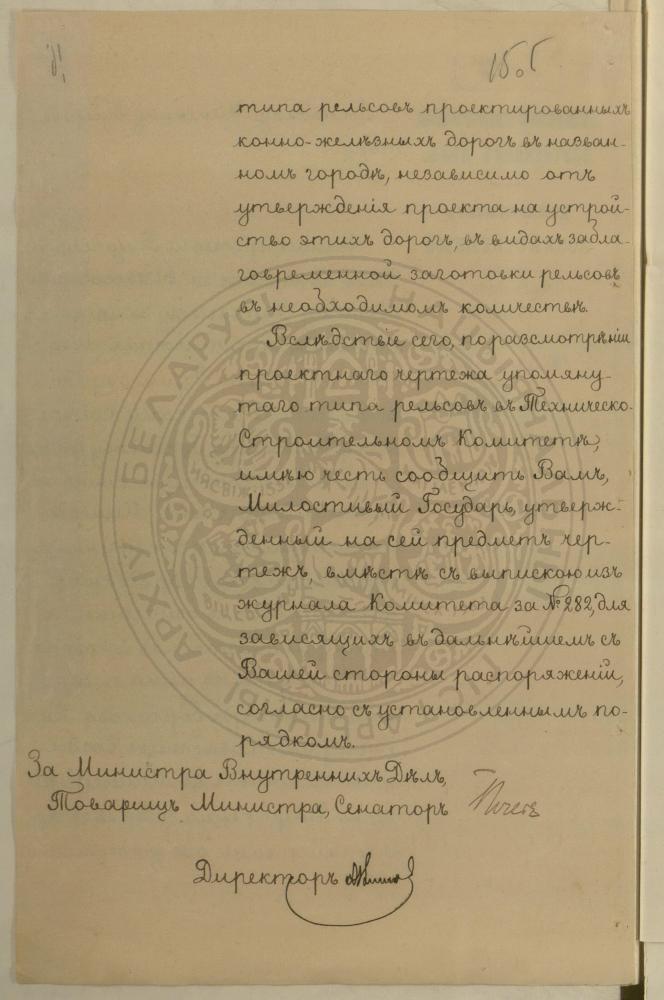 типа рельсовъ проектированныхъ
конно-желѣзныхъ дорогъ въ назван-
номъ городѣ, независимо отъ
утвержденія проекта на устрой-
ство этихъ дорогъ, въ видахъ забла-
говременной заготовки рельсовъ
въ необходимомъ количествѣ.
Вслѣдствіе сего, по разсмотрѣніи
проектнаго чертежа упомяну-
таго типа рельсовъ въ Техническо-
Строительномъ Комитетѣ,
имѣю честь сообщить Вамъ,
Милостивый Государь, утверж-
денный на сей предметъ чер-
тежъ, вмѣстѣ съ выпискою изъ
журнала Комитета за № 282, для
зависящихъ въ дальнѣйшемъ съ
Вашей стороны распоряженій,
согласно съ установленнымъ по-
рядкомъ.
За Министра Внутреннихъ Дѣлъ,
Товарищъ Министра, Сенаторъ
Директоръ